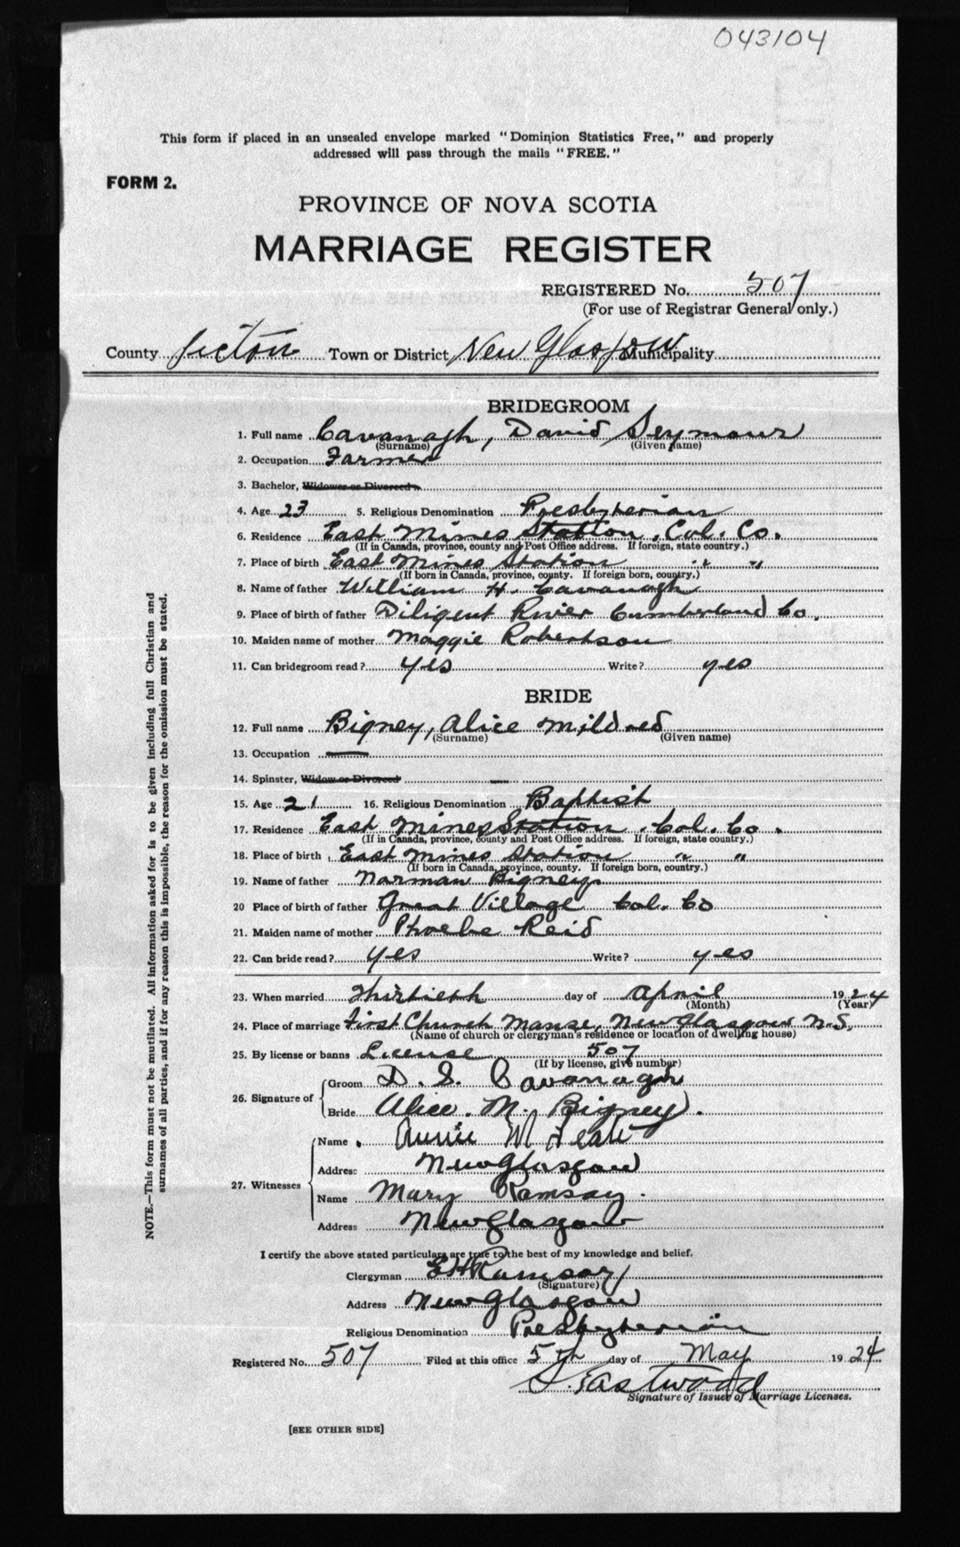 043104
This form if placed in an unsealed envelope marked "Dominion Statistics Free," and properly
addressed will pass through the mails "FREE."
FORM 2.
PROVINCE OF NOVA SCOTIA
MARRIAGE REGISTER
REGISTERED No. 507
(For use of Registrar General only.)
County Pictou Town or District New Glasgow Municipality
BRIDEGROOM
1. Full name Cavanagh, David Seymour
(Surname) (Given name)
2. Occupation Farmer
3. Bachelor, Widower or Divorced
4. Age 23 5. Religious Denomination Presbyterian
6. Residence East Mines Station, Col. Co.
(If in Canada, province, county and Post Office address. If foreign, state country.)
7. Place of birth East Mines Station " "
(If born in Canada, province, county. If foreign born, country.)
8. Name of father William H. Cavanagh
9. Place of birth of father Diligent River Cumberland Co.
10. Maiden name of mother Maggie Robertson
11. Can bridegroom read? yes Write? yes
BRIDE
12. Full name Bigney, Alice Mildred
(Surname) (Given name)
13. Occupation —
14. Spinster, Widow or Divorced —
15. Age 21 16. Religious Denomination Baptist
17. Residence East Mines Station. Col. Co.
(If in Canada, province, county and Post Office address. If foreign, state country.)
18. Place of birth East Mines Station " "
(If born in Canada, province, county. If foreign born, country.)
19. Name of father Norman Bigney
20 Place of birth of father Great Village Col. Co
21. Maiden name of mother Phoebe Reid
22. Can bride read? yes Write? yes
23. When married Thirtieth day of April 1924
(Month) (Year)
24. Place of marriage First Church Manse, New Glasgow N.S.
(Name of church or clergyman's residence or location of dwelling house)
25. By license or banns License 507
(If by license, give number)
26. Signature of
Groom D. S. Cavanagh
Bride Alice. M. Bigney.
27. Witnesses
Name Annie M
Address New Glasgow
Name Mary Ramsay.
Address New Glasgow
I certify the above stated particulars are true to the best of my knowledge and belief.
Clergyman E H Ramsay
(Signature)
Address New Glasgow
Religious Denomination Presbyterian
Registered No. 507 Filed at this office 5th day of May 1924
S. Eastwood
Signature of Issuer of Marriage Licenses.
[SEE OTHER SIDE]
NOTE.—This form must not be mutilated. All information asked for is to be given including full Christian and
surnames of all parties, and if for any reason this is impossible, the reason for the omission must be stated.